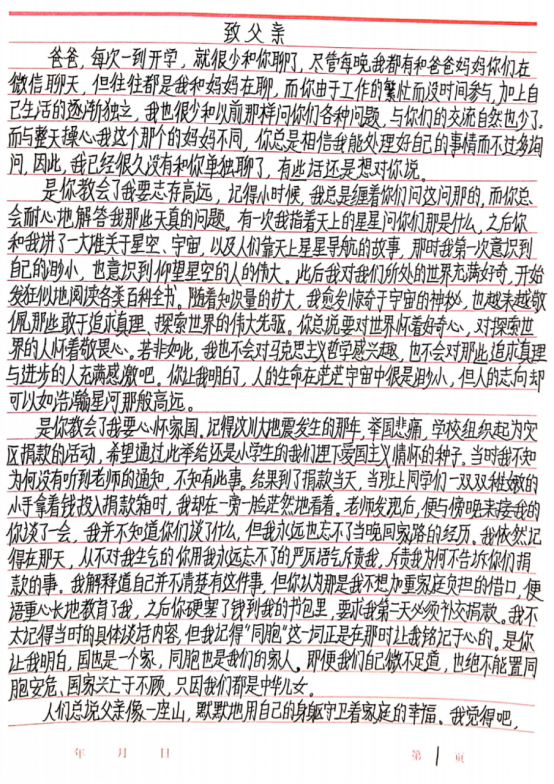 致父亲
爸爸，每次一到开学，就很少和你聊了，尽管每晚我都有和爸爸妈妈你们在
微信聊天，但往往都是我和妈妈在聊，而你由于工作的繁忙而没时间参与，加上自
己生活的逐渐独立，我也很少和以前那样问你们各种问题，与你们的交流自然也少了。
而与整天操心我这个那个的妈妈不同，你总是相信我能处理好自己的事情而不过多询
问，因此，我已经很久没有和你单独聊了，有些话还是想对你说。
是你教会了我要志存高远，记得小时候，我总是缠着你们问这问那的，而你总
会耐心地解答我那些天真的问题。有一次我指着天上的星星问你们那是什么，之后你
和我讲了一大堆关于星空、宇宙，以及人们靠天上星星导航的故事，那时我第一次意识到
自己的渺小，也意识到仰望星空的人的伟大。此后我对我们所处的世界充满好奇，开始
发狂似地阅读各类百科全书。随着知识量的扩大，我愈发惊奇于宇宙的神秘，也越来越敬
佩那些敢于追求真理、探索世界的伟大先驱。你总说要对世界怀着好奇心，对探索世
界的人怀着敬畏心。若非如此，我也不会对马克思主义哲学感兴趣，也不会对那些追求真理
与进步的人充满感激吧。你让我明白了，人的生命在茫茫宇宙中很是渺小，但人的志向却
可以如浩瀚星河那般高远。
是你教会了我要心怀家国。记得汶川大地震发生的那年，举国悲痛，学校组织起为灾
区捐款的活动，希望通过此举给还是小学生的我们埋下爱国主义情怀的种子。当时我不知
为何没有听到老师的通知，不知有此事。结果到了捐款当天，当班上同学们一双双稚嫩的
小手拿着钱投入捐款箱时，我却在一旁一脸茫然地看着。老师发现后，便与傍晚来接我的
你谈了一会，我并不知道你们谈了什么，但我永远也忘不了当晚回家路的经历。我依然记
得在那天，从不对我生气的你用我永远忘不了的严厉语气斥责我，斥责我为何不告诉你们捐
款的事。我解释道自己并不清楚有这件事，但你以为那是我不想加重家庭负担的借口，便
语重心长地教育了我，之后你硬塞了钱到我的书包里，要求我第二天必须补交捐款。我不
太记得当时的具体谈话内容，但我记得“同胞”这一词正是在那时让我铭记于心的。是你
让我明白，国也是一个家，同胞也是我们的家人。即便我们自己微不足道，也绝不能置同
胞安危、国家兴亡于不顾，只因我们都是中华儿女。
人们总说父亲像一座山，默默地用自己的身躯守卫着家庭的幸福。我觉得吧，
年 月 日 第 1 页